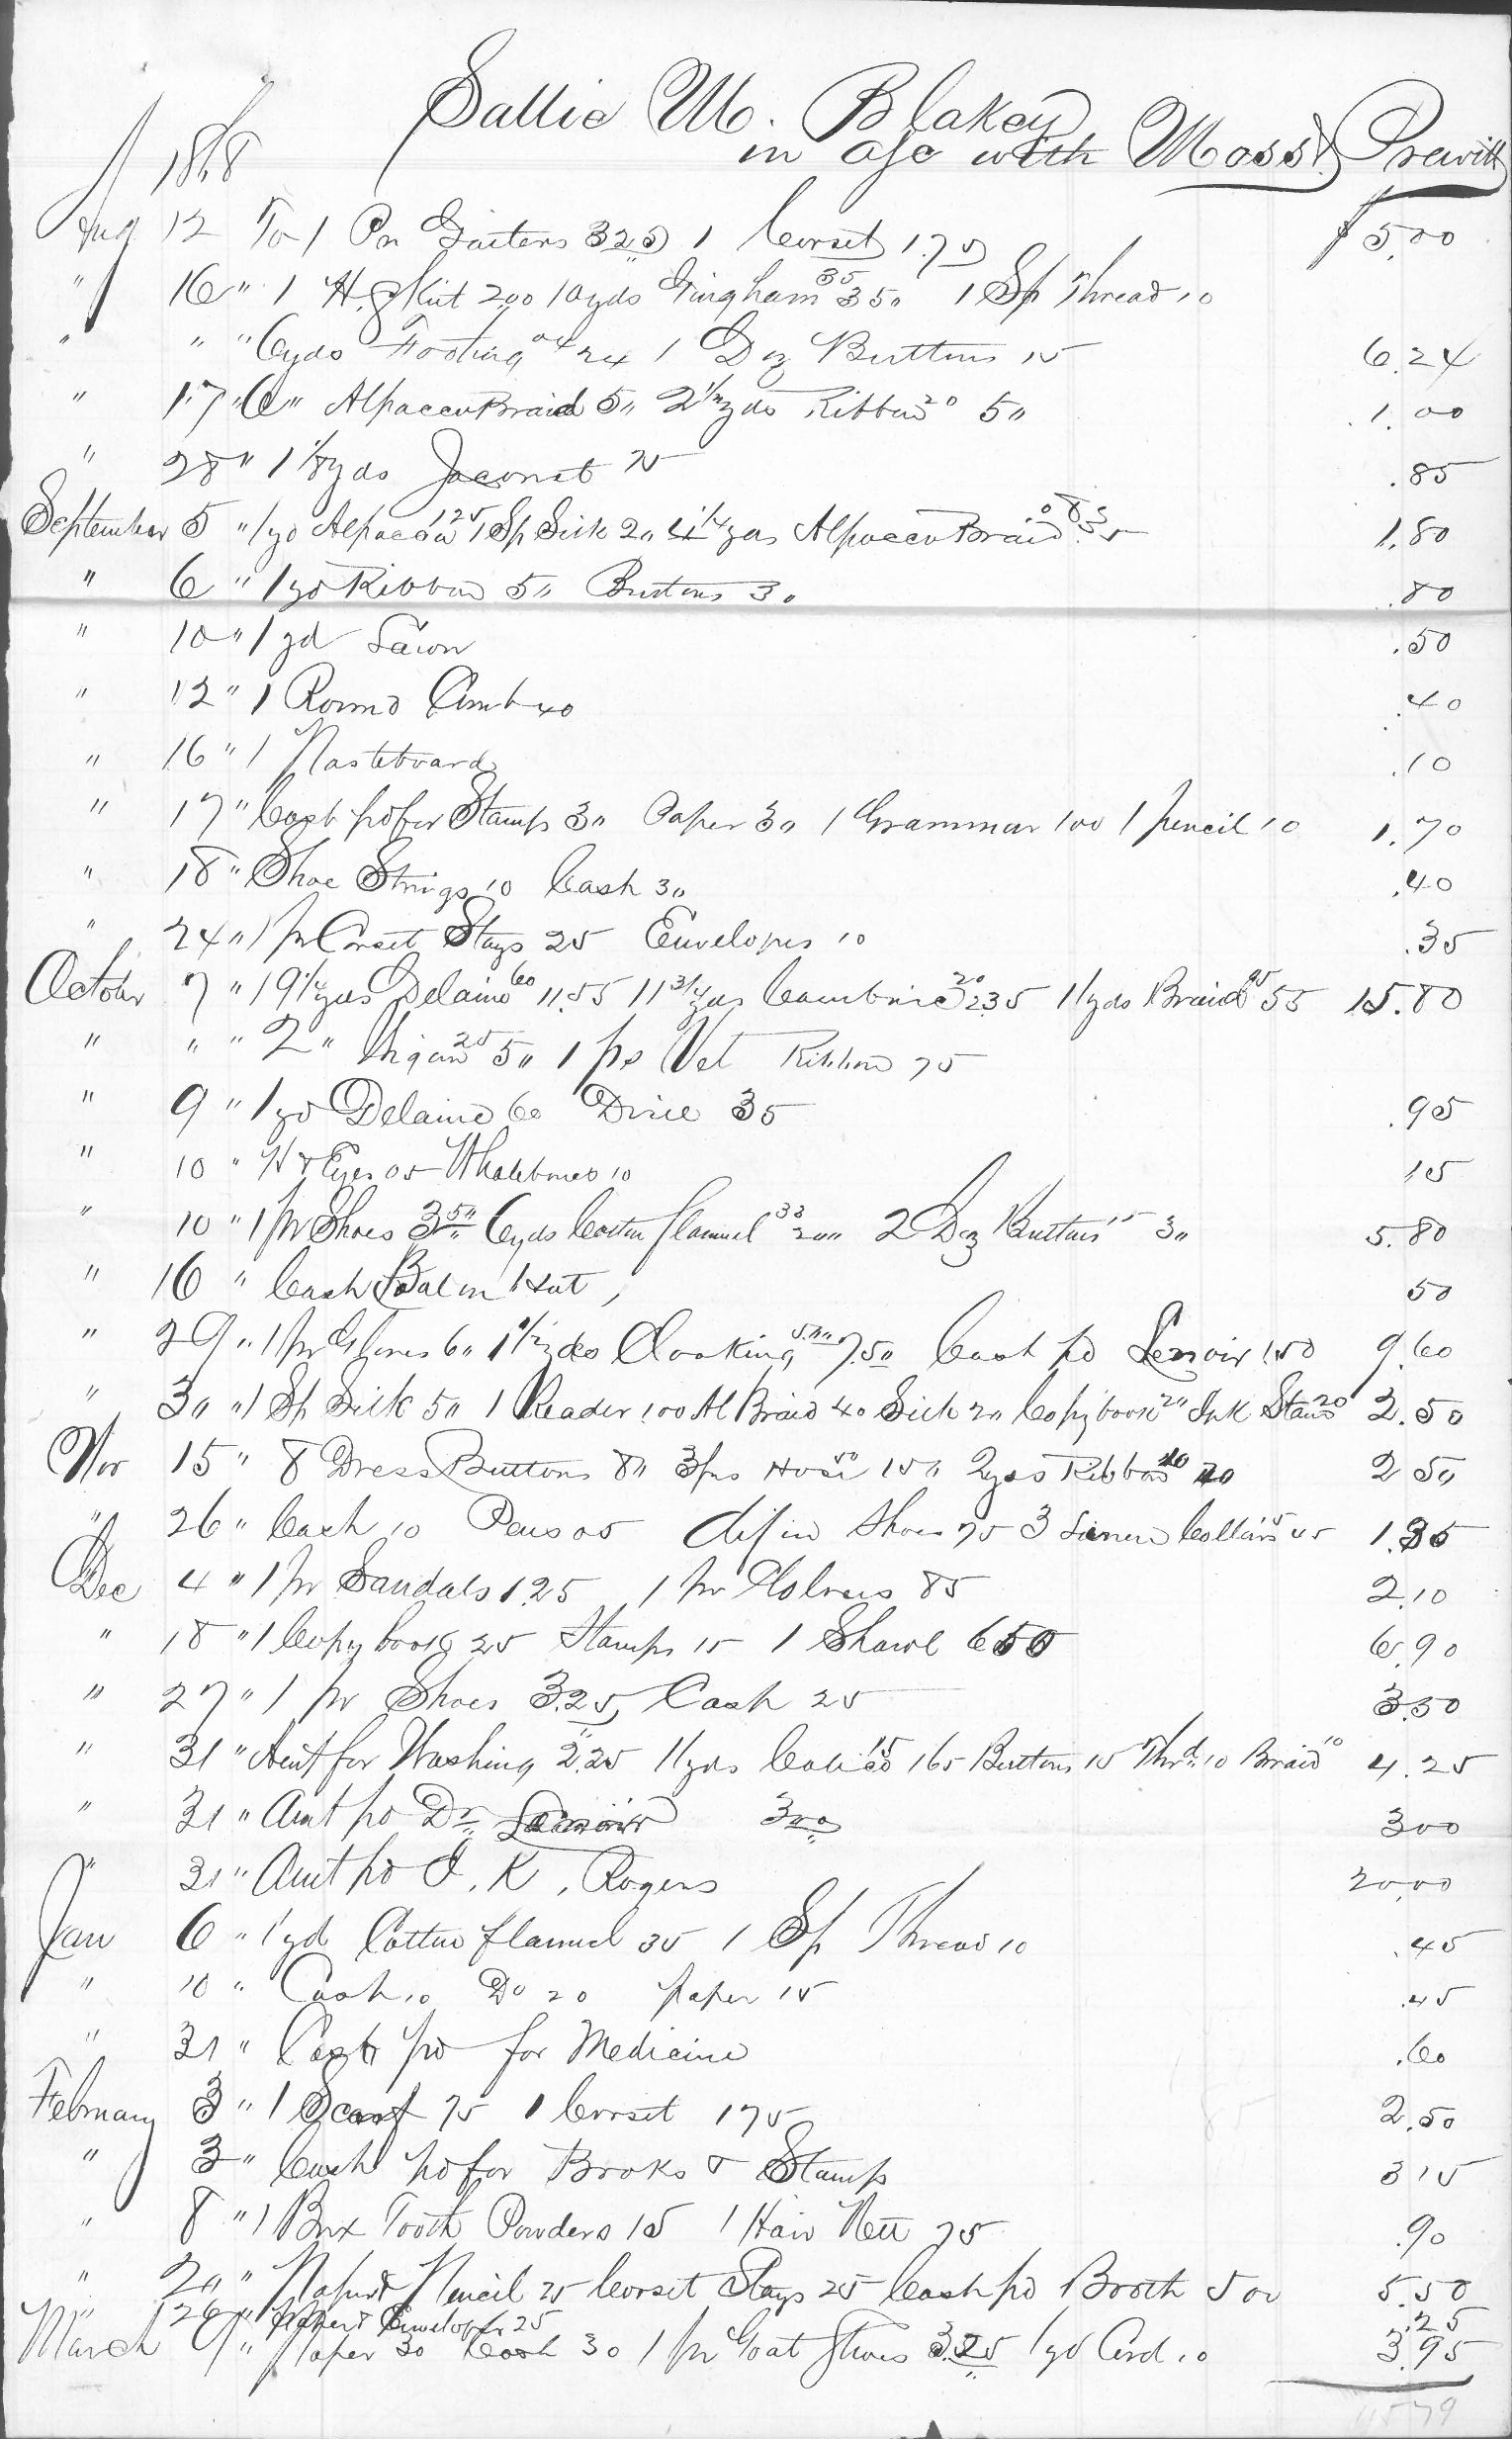 Sallie M. Blakey
1868 in a/c with Moss & Prewitt
Aug 12 To 1 Pr Gaiters 325 1 Corset 1.75 $5.00
" 16 " 1 H. Skirt 200 10 yds Gingham 35 350 1 Sp Thread 10
" " " 6 yds Footing 04 24 1 Doz Buttons 15 6.24
" 17 " 6 " Alpacca Braid 50 2 1/2 yds Ribbon 20 50 1.00
" 28 " 1 1/8 yds Jaconet 75 .85
September 5 " 1 yd Alpacca 125 1 Sp Silk 20 4 1/4 yds Alpacca Braid 08 35 1.80
" 6 " 1 yd Ribbon 50 Buttons 30 .80
" 10 " 1 yd Lawn .50
" 12 " 1 Round Comb 40 .40
" 16 " 1 Pasteboard .10
" 17 " Cash pd for Stamps 30 Paper 30 1 Grammar 100 1 pencil 10 1.70
" 18 " Shoe Strings 10 Cash 30 .40
" 24 " 1 pr Corset Stays 25 Envelopes 10 .35
October 7 " 19 1/4 yds Delaine 60 11.55 11 3/4 yds Cambric 20 2.35 11 yds Braid 05 55 15.80
" " " 2 " 25 50 1 ps Vet Ribbon 75
" 9 " 1 yd Delaine 60 Dixie 35 .95
" 10 " H & Eyes 05 Whalebones 10 15
" 10 " 1 pr Shoes 350 6 yds Cotton flannel 33 200 2 Doz Buttons 15 30 5.80
" 16 " Cash Bal on Hat 50
" 29 " 1 pr Gloves 60 1 1/2 yds Cloaking 500 7.50 Cash pd Lenoir 150 9.60
" 30 " 1 Sp Silk 50 1 Reader 100 Al Braid 40 Silk 20 Copy book 20 Ink Stand 20 2.50
Nov 15 " 8 Dress Buttons 80 3 prs Hose 50 150 2 yds Ribbon 10 20 2 50
" 26 " Cash 10 Pens 05 dif in Shoes 75 3 Linen Collars 15 45 1.35
Dec 4 " 1 pr Sandals 1.25 1 pr Gloves 85 2.10
" 18 " 1 Copy book 25 Stamps 15 1 Shawl 650 6.90
" 27 " 1 pr Shoes 3.25 Cash 25 3.50
" 31 " Amt for Washing 2.25 11 yds Calico 15 165 Buttons 15 Thrd 10 Braid 10 4.25
" 31 " Amt pd Dr Lenoir 300 300
" 31 " Amt pd J. K. Rogers 20.00
Jan 6 " 1 yd Cotton flannel 35 1 Sp Thread 10 .45
" 10 " Cash 10 Do 20 paper 15 .45
" 31 " Cash pd for Medicine .60
February 3 " 1 Scarf 75 1 Corset 175 2.50
" 3 " Cash pd for Books & Stamps 3 15
" 8 " 1 Box Tooth Powders 15 1 Hair Nett 75 .90
" 20 " Paper & Pencil 25 Corset Stays 25 Cash pd Booth 5 00 5.50
" 26 " Paper & Envelopes 25 .25
March 9 " Paper 30 Cash 30 1 pr Goat Shoes 325 1 yd Cord 10 3.95